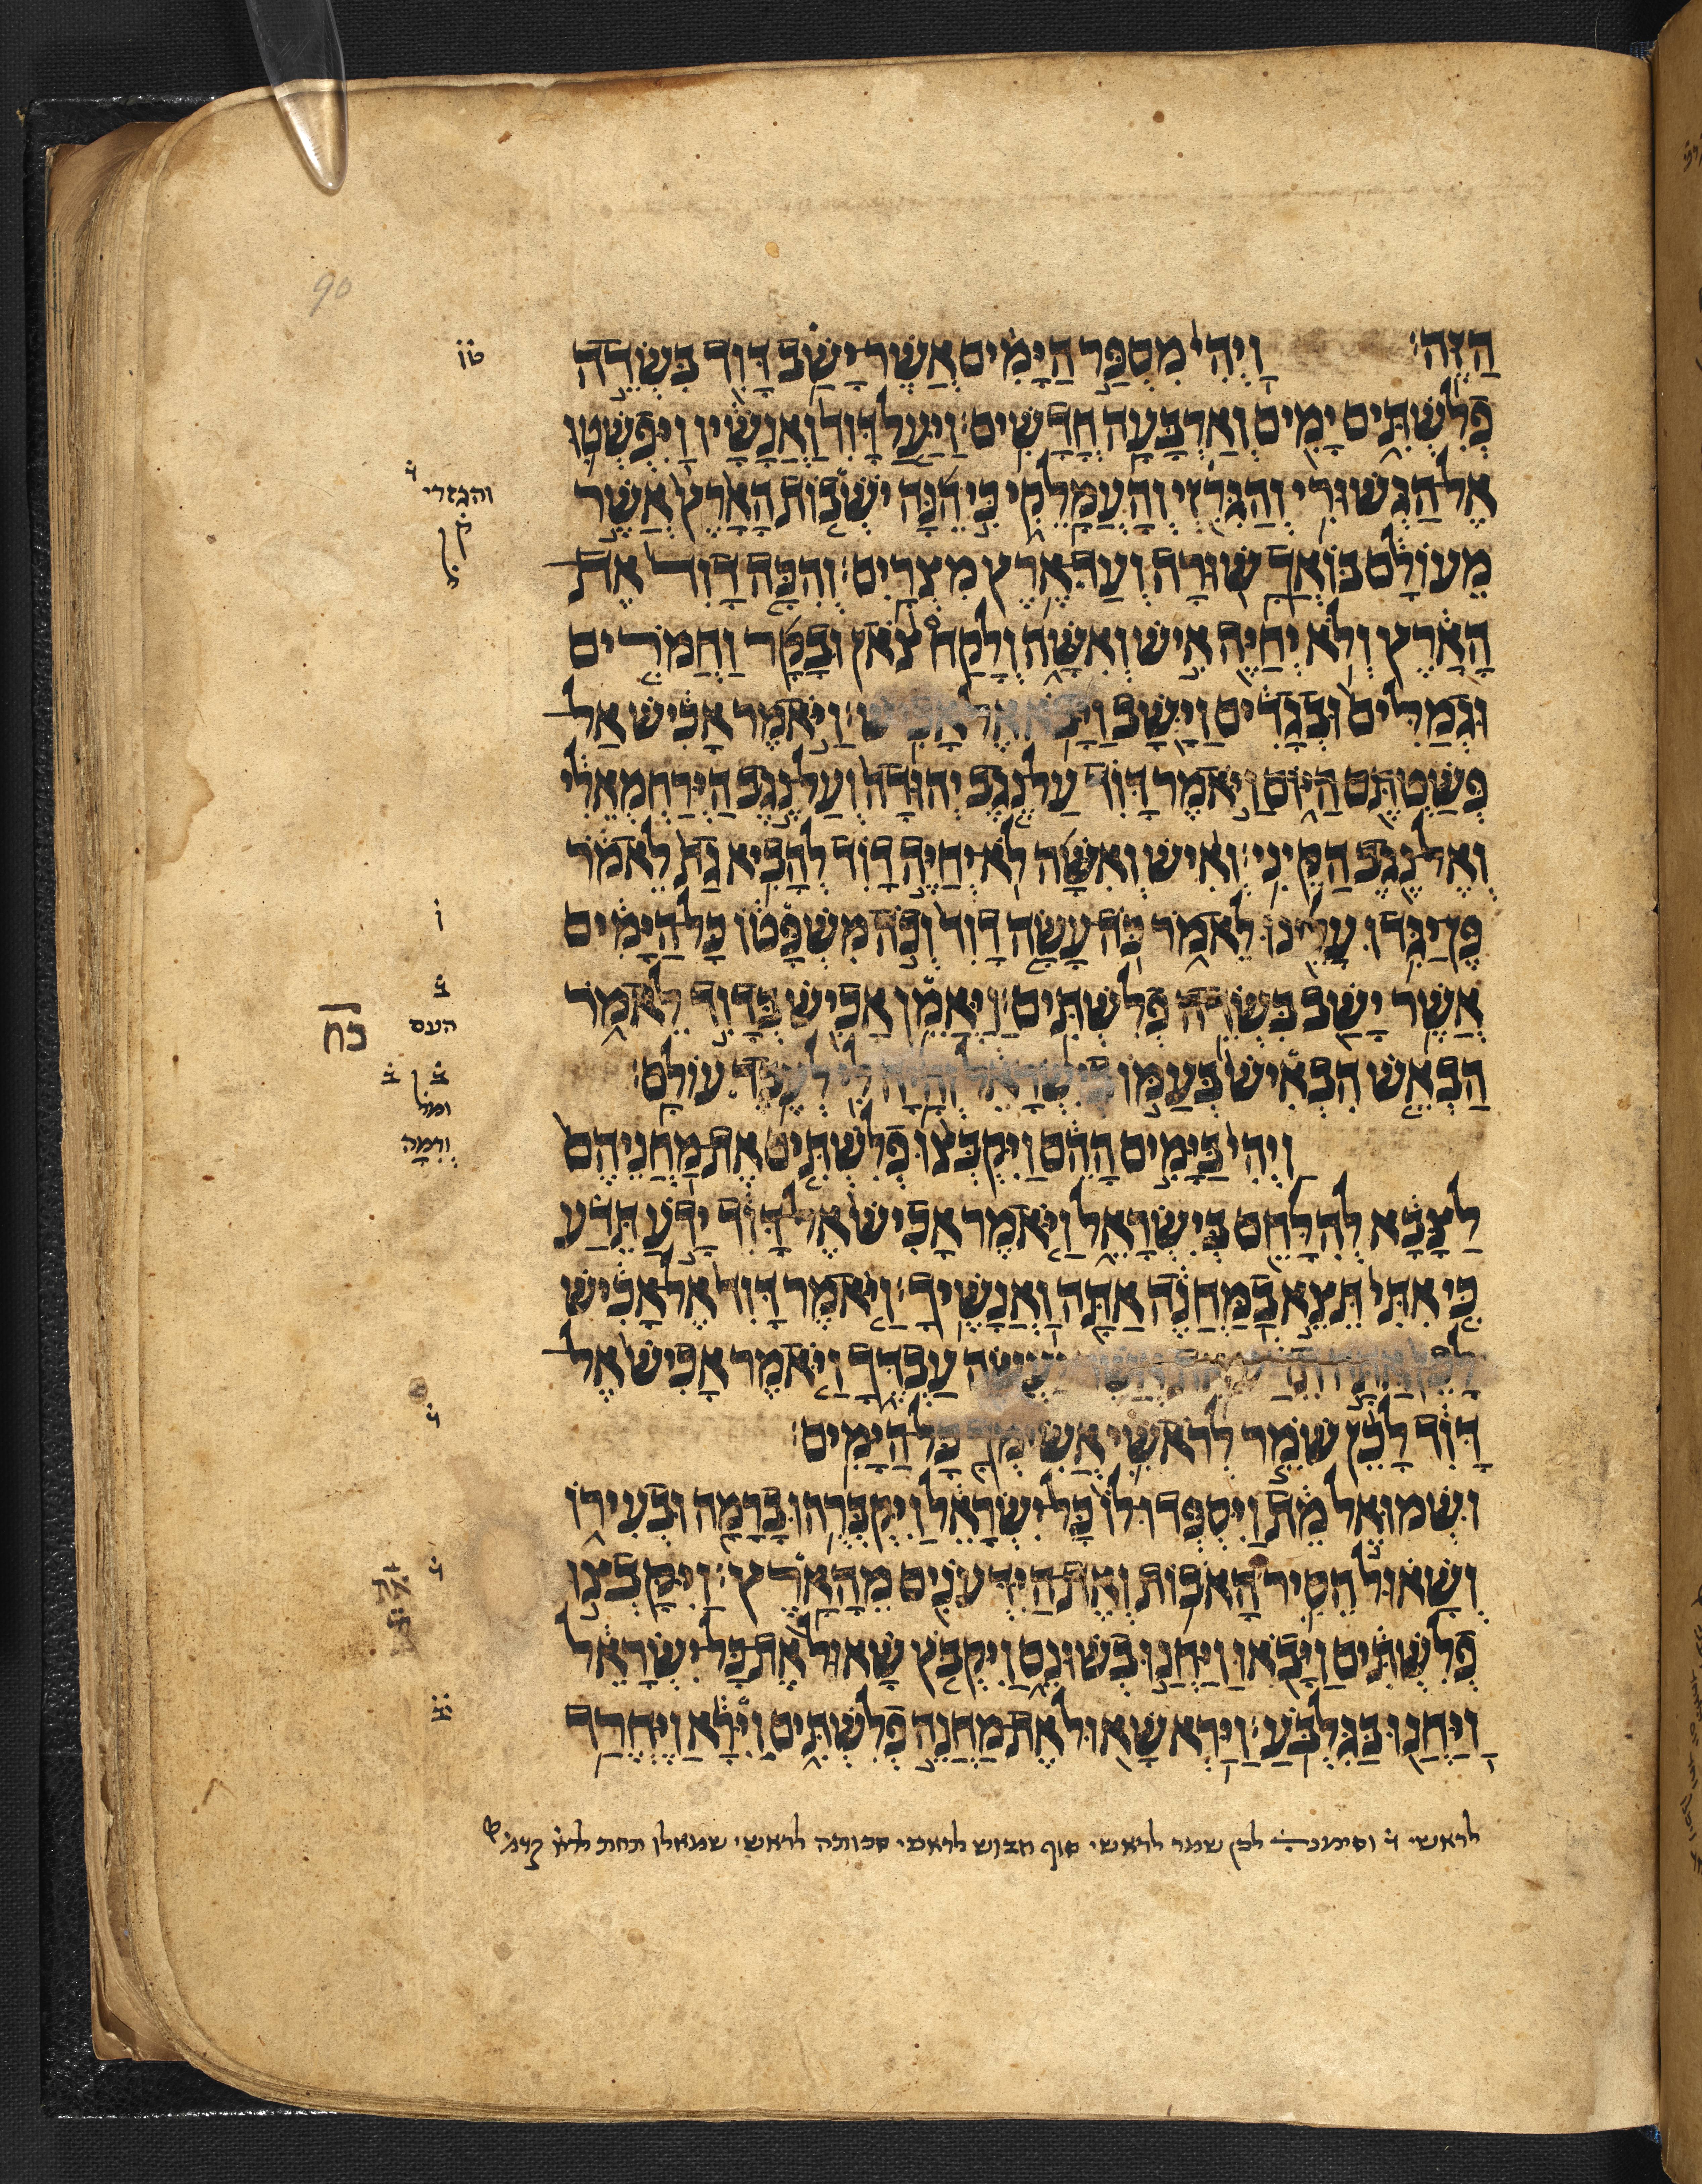 הַזֶּה׃ וַיְהִי מִסְפַּר הַיָּמִים אֲשֶׁר יָשַׁב דָּוִד בִּשְׂדֵה
פְלִשְׁתִּים יָמִים וְאַרְבָּעָה חֳדָשִׁים׃ וַיַּעַל דָּוִד וַאֲנָשָׁיו וַיִּפְשְׁטוּ
אֶל־הַגְּשׁוּרִי וְהַגִּרְזִי וְהָעֲמָלֵקִי כִּי הֵנָּה יֹשְׁבוֹת הָאָרֶץ אֲשֶׁר
מֵעוֹלָם בּוֹאֲךָ שׁוּרָה וְעַד־אֶרֶץ מִצְרָיִם׃ וְהִכָּה דָוִד אֶת־
הָאָרֶץ וְלֹא יְחַיֶּה אִישׁ וְאִשָּׁה וְלָקַח צֹאן וּבָקָר וַחֲמֹרִים
וּגְמַלִּים וּבְגָדִים וַיָּשָׁב וַיָּבֹא אֶל־אָכִישׁ׃ וַיֹּאמֶר אָכִישׁ אַל־
פְּשַׁטְתֶּם הַיּוֹם וַיֹּאמֶר דָּוִד עַל־נֶגֶב יְהוּדָה וְעַל־נֶגֶב הַיַּרְחְמְאֵלִי
וְאֶל־נֶגֶב הַקֵּינִי׃ וְאִישׁ וְאִשָּׁה לֹא־יְחַיֶּה דָוִד לְהָבִיא גַת לֵאמֹר
פֶּן־יַגִּדוּ עָלֵינוּ לֵאמֹר כֹּה־עָשָׂה דָוִד וְכֹה מִשְׁפָּטוֹ כָּל־הַיָּמִים
אֲשֶׁר יָשַׁב בִּשְׂדֵה פְלִשְׁתִּים׃ וַיַּאֲמֵן אָכִישׁ בְּדָוִד לֵאמֹר
הַבְאֵשׁ הִבְאִישׁ בְּעַמּוֹ בְיִשְׂרָאֵל וְהָיָה לִי לְעֶבֶד עוֹלָם׃
וַיְהִי בַּיָּמִים הָהֵם וַיִּקְבְּצוּ פְלִשְׁתִּים אֶת־מַחֲנֵיהֶם
לַצָּבָא לְהִלָּחֵם בְּיִשְׂרָאֵל וַיֹּאמֶר אָכִישׁ אֶל־דָּוִד יָדֹעַ תֵּדַע
כִּי אִתִּי תֵּצֵא בַמַּחֲנֶה אַתָּה וַאֲנָשֶׁיךָ׃ וַיֹּאמֶר דָּוִד אֶל־אָכִישׁ
לָכֵן אַתָּה תֵדַע אֵת אֲשֶׁר־יַעֲשֶׂה עַבְדֶּךָ וַיֹּאמֶר אָכִישׁ אֶל־
דָּוִד לָכֵן שֹׁמֵר לְרֹאשִׁי אֲשִׂימְךָ כָּל־הַיָּמִים׃
וּשְׁמוּאֵל מֵת וַיִּסְפְּדוּ־לוֹ כָּל־יִשְׂרָאֵל וַיִּקְבְּרֻהוּ בָרָמָה וּבְעִירוֹ
וְשָׁאוּל הֵסִיר הָאֹבוֹת וְאֶת־הַיִּדְּעֹנִים מֵהָאָרֶץ׃ וַיִּקָּבְצוּ
פְלִשְׁתִּים וַיָּבֹאוּ וַיַּחֲנוּ בְשׁוּנֵם וַיִּקְבֹּץ שָׁאוּל אֶת־כָּל־יִשְׂרָאֵל
וַיַּחֲנוּ בַּגִּלְבֹּעַ׃ וַיַּרְא שָׁאוּל אֶת־מַחֲנֵה פְלִשְׁתִּים וַיִּרָא וַיֶּחֱרַד
לראשי ו֗ לכן שמר לראשי סוף חבוש לראשי סכותה לראשי שמאלו תחת
טו֗
והגזרי
ק֗
ו֗
ב֗
העם
כח
ב֗
ב֗
ו֗
ו֗
את
90